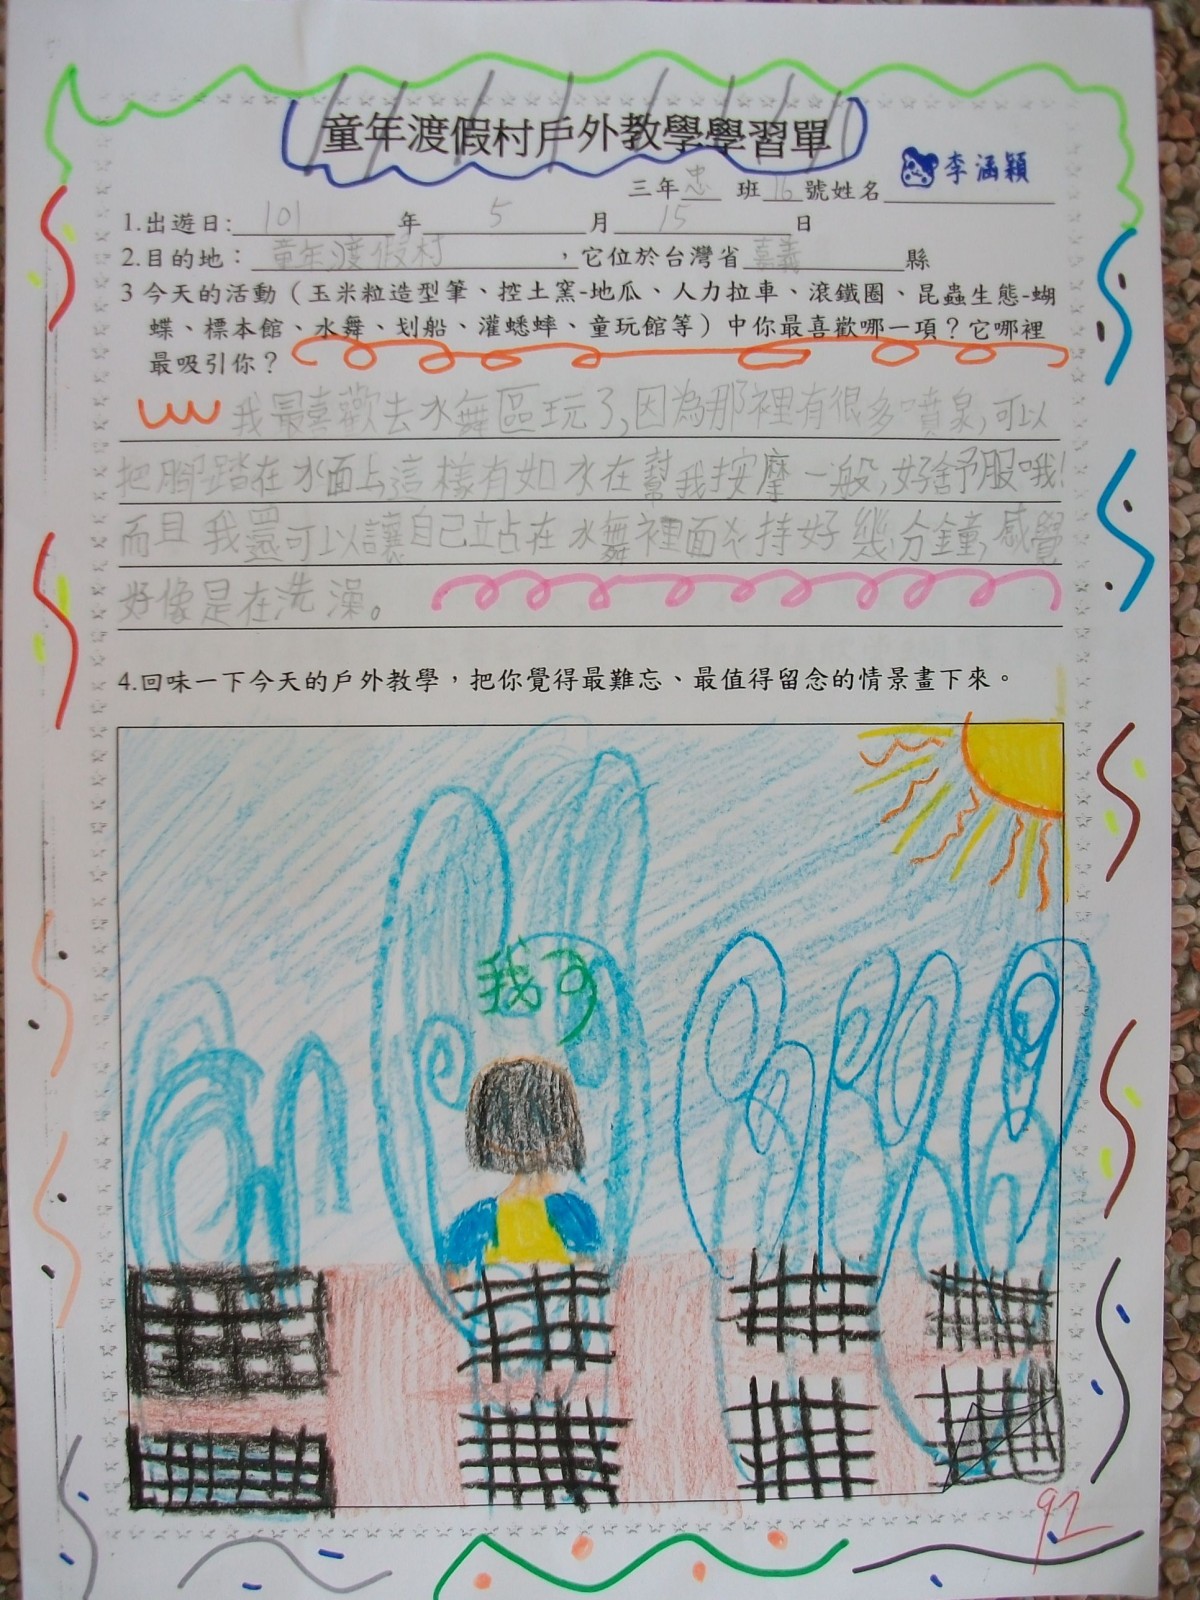 童年渡假村戶外教學學習單
三年忠班16號姓名李涵穎
1.出遊日:101年5月15日
2.目的地：童年渡假村，它位於台灣省嘉義縣
3 今天的活動（玉米粒造型筆、控土窯-地瓜、人力拉車、滾鐵圈、昆蟲生態-蝴
蝶、標本館、水舞、划船、灌蟋蟀、童玩館等）中你最喜歡哪一項？它哪裡
最吸引你？
我最喜歡去水舞區玩了,因為那裡有很多噴泉,可以
把腳踏在水面上這樣有如水在幫我按摩一般,好舒服哦!
而且我還可以讓自己站在水舞裡面维持好幾分鐘,感覺
好像是在洗澡。
4.回味一下今天的戶外教學，把你覺得最難忘、最值得留念的情景畫下來。
我
92